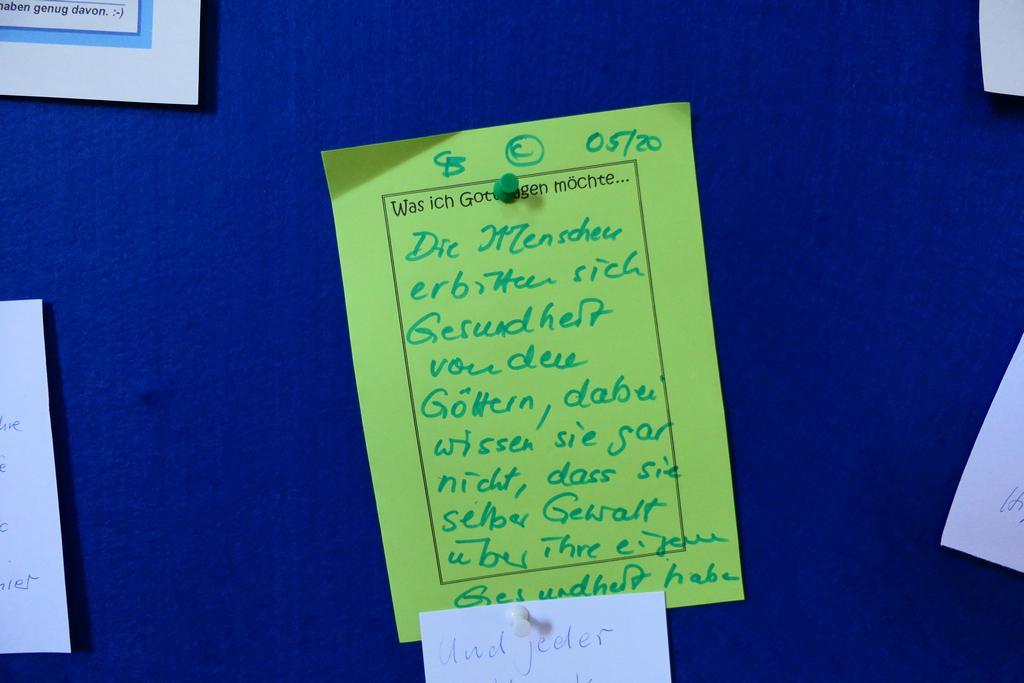 haben genug davon. :-)
CB © 05/20
Was ich Gott sagen möchte...
Die Menschen
erbitten sich
Gesundheit
von den
Göttern, dabei
wissen sie gar
nicht, dass sie
selber Gewalt
über ihre eigene
Gesundheit habe
Und jeder
hier